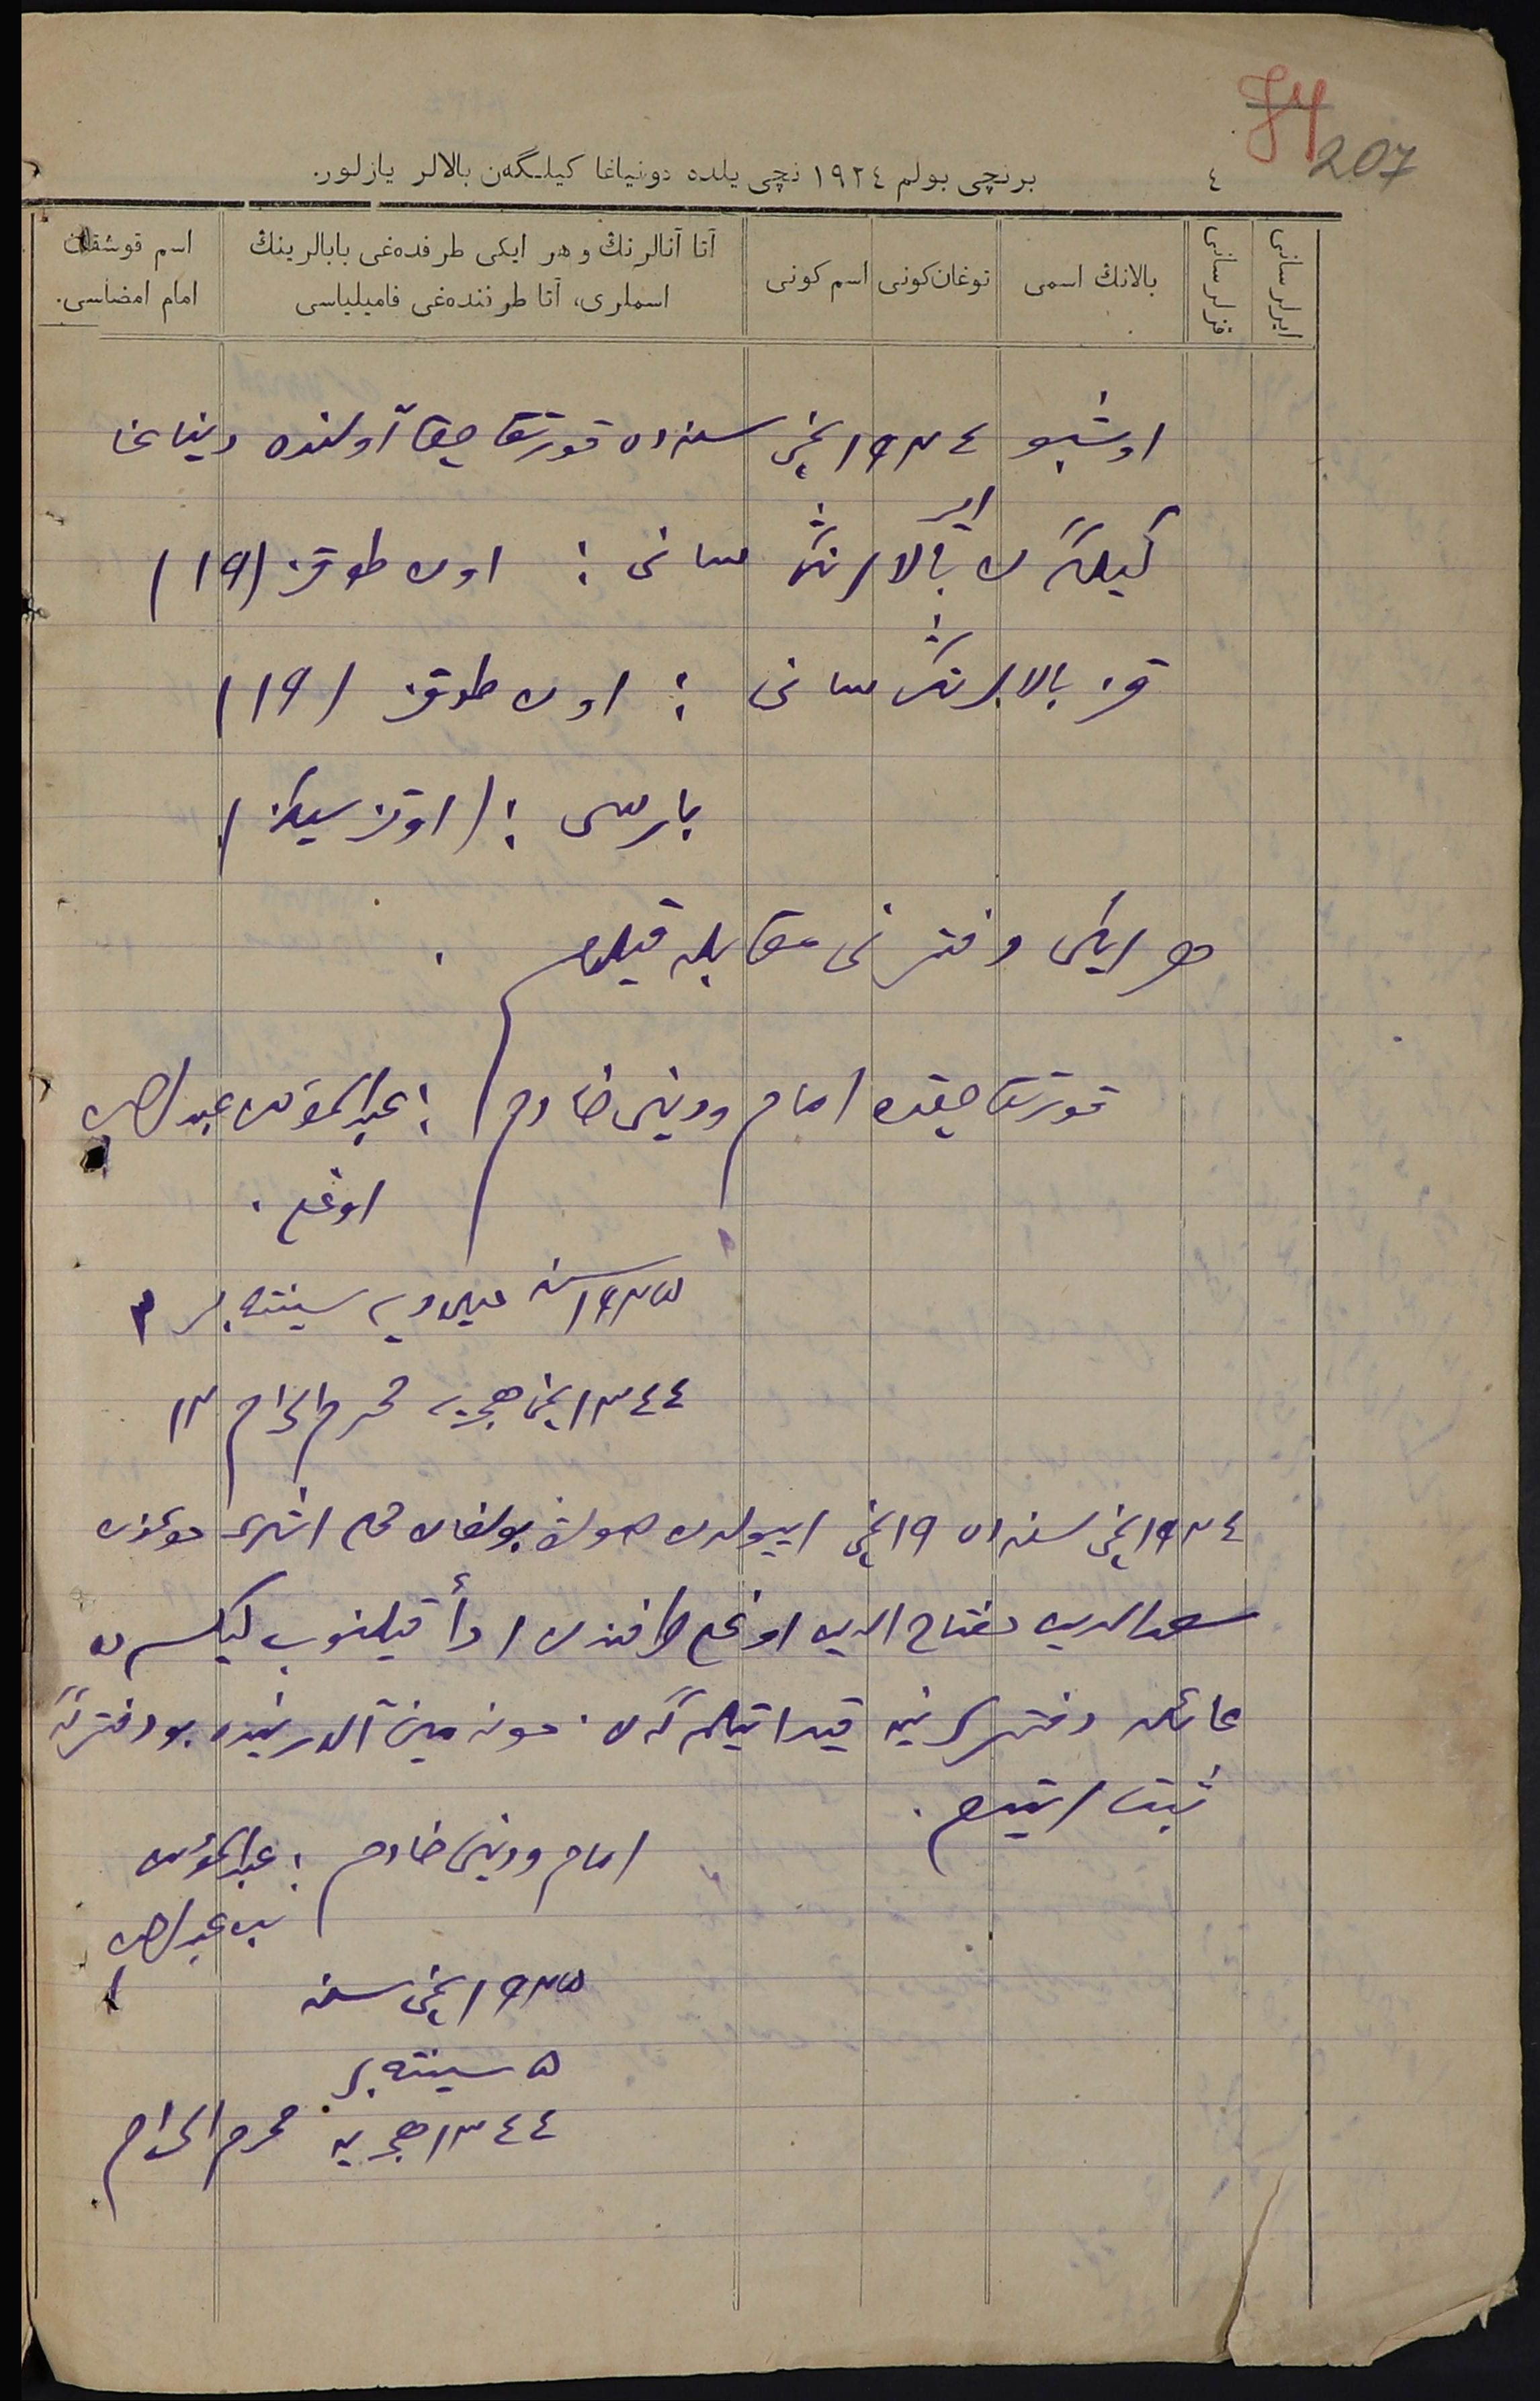 74
207
٤
برنچی بولم ١٩٢٤ نچی یلده دونیاغا کیلـگەن بالالر یازلور.
ایرلر سانی
قزلر سانی
بالانڭ اسمی
توغان کونی
اسم کونی
آتا آنالرنڭ و هر ایکی طرفدەغی بابالرینڭ
اسملری، آتا طرفندەغی فامیلیاسی
اسم قوشقان
امام امضاسی.
اوشبو ١٩٢٤ نچی سنەدە اولنده دنیاغا
کیلگەن ایر بالالرنڭ سانی : اون طوقز (١٩)
قز بالالرنڭ سانی : اون طوقز (١٩)
بارسی : (اوتز سیکز)
هر ایکی دفترنی مقابله قیلدم .
امام و دینی خادم : عبدالمؤمن
اوغلی .
١٩٢٥ سنه میلادیه سینتەبر ٣
١٣٤٤ نچی هجریه محرم الحرام ١٣
١٩٢٤ نچی سنەدە ١٩ نچی اییولدن صوڭ بولغان
سعدالدین مفتاح الدین اوغلی طرفندن ادأ قیلنوب
عائله دفترلرینه قید ایتلمەگەن . شونه مین آلارنیده بو دفترگە
ثبت ایتدم .
امام و دینی خادم : عبدالمؤمن
١٩٢٥ نچی سنه
٥ سینتەبر
١٣٤٤ هجریه محرم الحرام